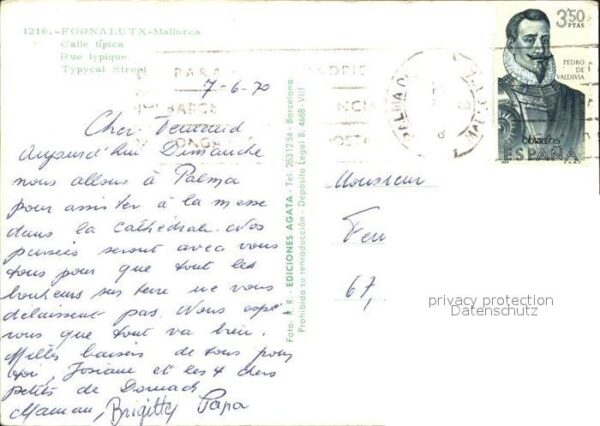 1216.-FORNALUTX-Mallorca
Calle típica
Rue typique
Typycal Street
7-6-70
Cher
Aujourd'hui Dimanche
nous allons à Palma
pour assister à la messe
dans la Cathédrale. Nos
pensées seront avec vous
tous pour que tout les
bonheurs sur terre ne vous
délaissent pas. Nous
vous que tout va bien.
Milles baisers de tous pour
toi, Josiane et les 4 chers
petits de Dornach
Maman, Brigitte Papa
Foto: R. R. - EDICIONES AGATA - Tel. 2531254 - Barcelona
Prohibida su reproducción - Depósito Legal B. 4668-VIII
3'50
PTAS
PEDRO
DE
VALDIVIA
CORREOS
ESPAÑA
PARA
MADRID
PALMA
Monsieur
67,
privacy protection
Datenschutz